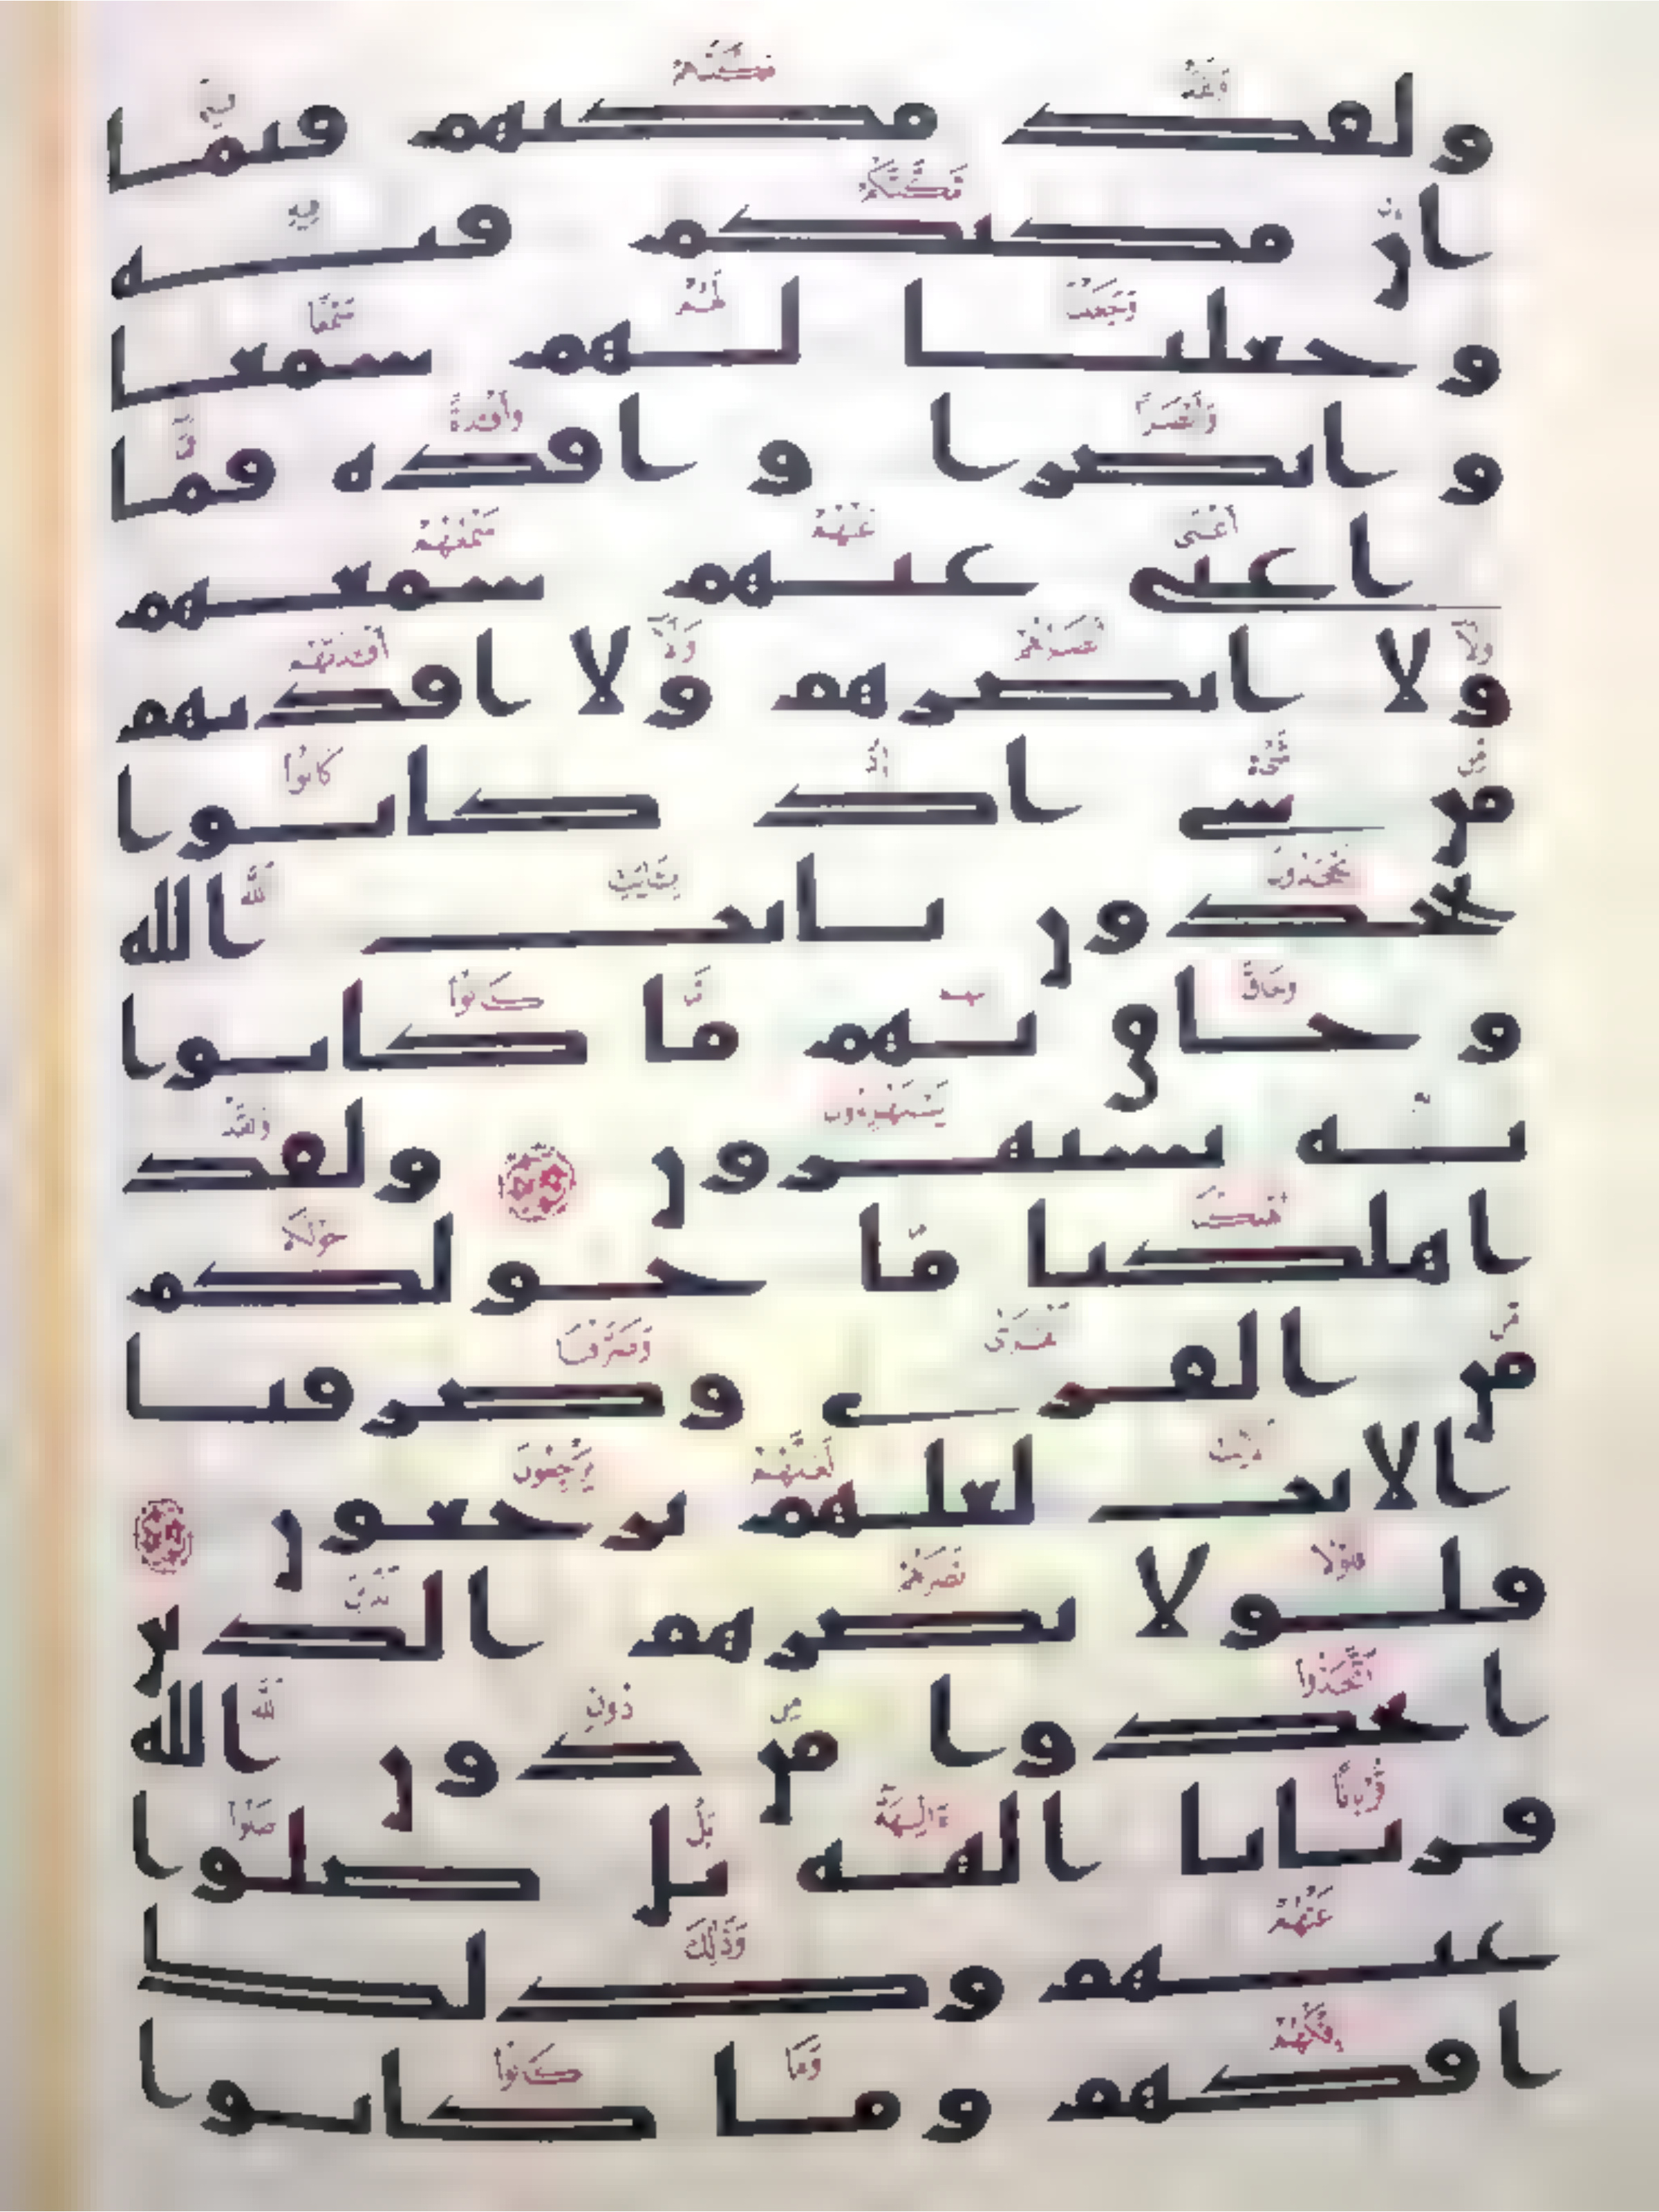 ولقد مكنهم فيما
ان مكنكم فيه
وجعلنا لهم سمعا
وابصرا وافده فما
اغنى عنهم سمعهم
ولا ابصرهم ولا افدتهم
من شى اذ كانوا
يجحدون بايت الله
وحاق بهم ما كانوا
به يستهزون ولقد
اهلكنا ما حولكم
من القرى وصرفنا
الايت لعلهم يرجعون
فلولا نصرهم الذين
اتخذوا من دون الله
قربانا الهه بل ضلوا
عنهم وذلك
افكهم وما كانوا